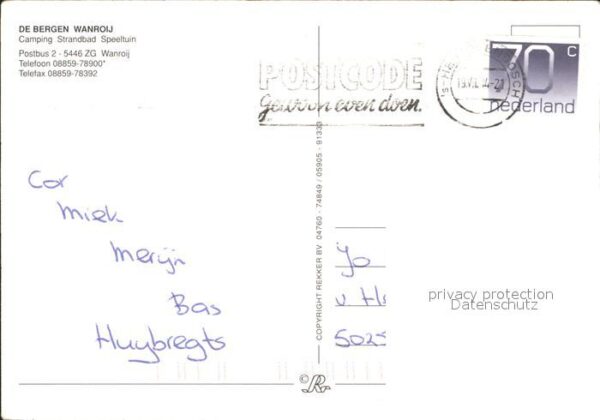 DE BERGEN WANROIJ
Camping Strandbad Speeltuin
Postbus 2 - 5446 ZG Wanroij
Telefoon 08859-78900*
Telefax 08859-78392
POSTCODE
Gewoon even doen.
70 c
nederland
COPYRIGHT REKKER BV 04760 - 74849 / 05905 - 91333
Cor
Miek
Merijn
Bas
Huybregts
Jo
v H
5025
privacy protection
Datenschutz